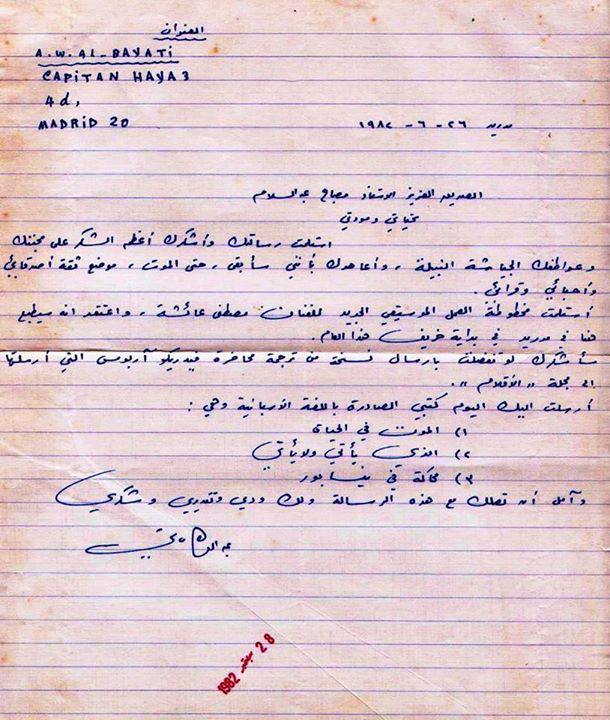 العنوان
A.W. AL-BAYATI
CAPITAN HAYA 3
4 d,
MADRID 20
مدريد ٢٦ - ٦ - ١٩٨٢
الصديق العزيز الاستاذ مصباح عبدالسلام
تحياتي ومودتي
استلمت رسالتك وأشكرك أعظم الشكر على محبتك
وعواطفك الجياشة النبيلة، وأعاهدك بأنني سأبقى، حتى الموت، موضع ثقة أصدقائي
وأحبائي وقرائي.
استلمت مخطوطة العمل الموسيقي الجديد للفنان مصطفى عائشة، واعتقد انه سيطبع
هنا في مدريد في بداية خريف هذا العام.
سأشكرك لو تفضلت بارسال نسخة من ترجمة محاضرة فيديريكو آربوس التي أرسلتها
الى مجلة "الأقلام".
أرسلت اليك اليوم كتبي الصادرة باللغة الأسبانية وهي:
١) الموت في الحياة
٢) الذي يأتي ولا يأتي
٣) محاكمة في نيسابور
وآمل أن تصلك مع هذه الرسالة ولك ودي وتقديري وشكري
28 1982